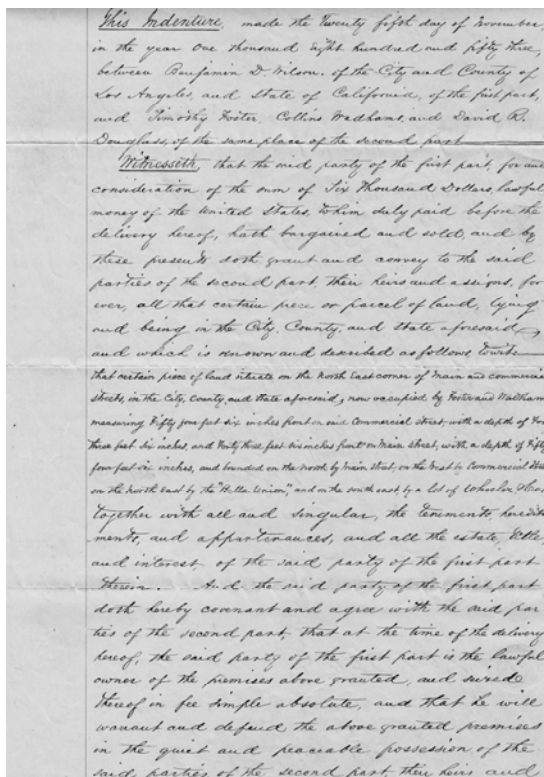 This Indenture, made the Twenty fifth day of November,
in the year One thousand Eight hundred and fifty three,
between Benjamin D. Wilson, of the City and County of
Los Angeles, and State of California, of the first part,
and Timothy Foster, Collins Wadhams, and David R.
Douglass, of the same place of the second part
Witnesseth, that the said party of the first part, for and
consideration of the sum of Six Thousand Dollars, lawful
money of the United States, to him duly paid before the
delivery hereof, hath bargained and sold, and by
these presents doth grant and convey to the said
parties of the second part, their heirs and assigns, for
ever, all that certain piece or parcel of land, lying
and being in the City, County, and State aforesaid,
and which is known and described as follows, towit:
that certain piece of land situate on the North East corner of Main and commercial
streets, in the City, County, and state aforesaid, now occupied by Foster and Wadham
measuring Fifty four feet six inches front on said Commercial street, with a depth of
three feet six inches, and Forty three feet six inches front on Main street, with a depth of Fifty
four feet six inches, and bounded on the north by Main street, on the West by Commercial
on the North East by the "Bella Union", and on the south east by a lot of Wheeler
together with all and singular, the tenements, heredit
ments, and appurtenances, and all the estate, title,
and interest of the said party of the first part
therein. And the said party of the first part
doth hereby covenant and agree with the said par
ties of the second part, that at the time of the delivery
hereof, the said party of the first part is the lawful
owner of the premises above granted, and seized
thereof in fee simple absolute, and that he will
warrant and defend the above granted premises
in the quiet and peaceable possession of the
said parties of the second part, their heirs and